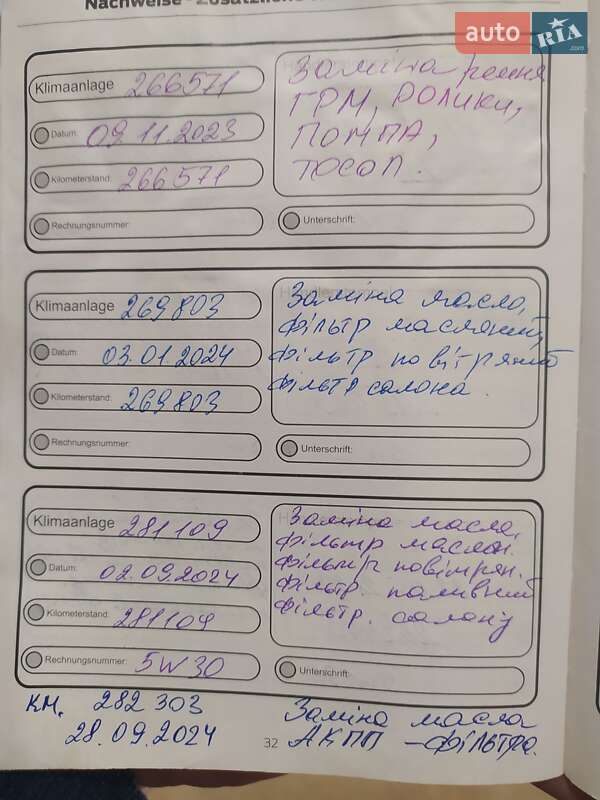 Nachweise - Zusätzliche
auto RIA .com
Klimaanlage 266571
Datum: 09.11.2023
Kilometerstand: 266571
Rechnungsnummer:
Заміна ременя
ГРМ, РОЛИКИ,
ПОМПА,
ТОСОЛ.
Unterschrift:
Klimaanlage 269803
Datum: 03.01.2024
Kilometerstand: 269803
Rechnungsnummer:
Заміна масла,
фільтр масляний,
фільтр повітряний
фільтр салона.
Unterschrift:
Klimaanlage 281109
Datum: 02.09.2024
Kilometerstand: 281109
Rechnungsnummer: 5W30
Заміна масла,
фільтр маслян.
фільтр повітрян.
фільтр. паливний
фільтр. салону
Unterschrift:
км. 282 303
28.09.2024
32
Заміна масла
АКПП – фільтра.